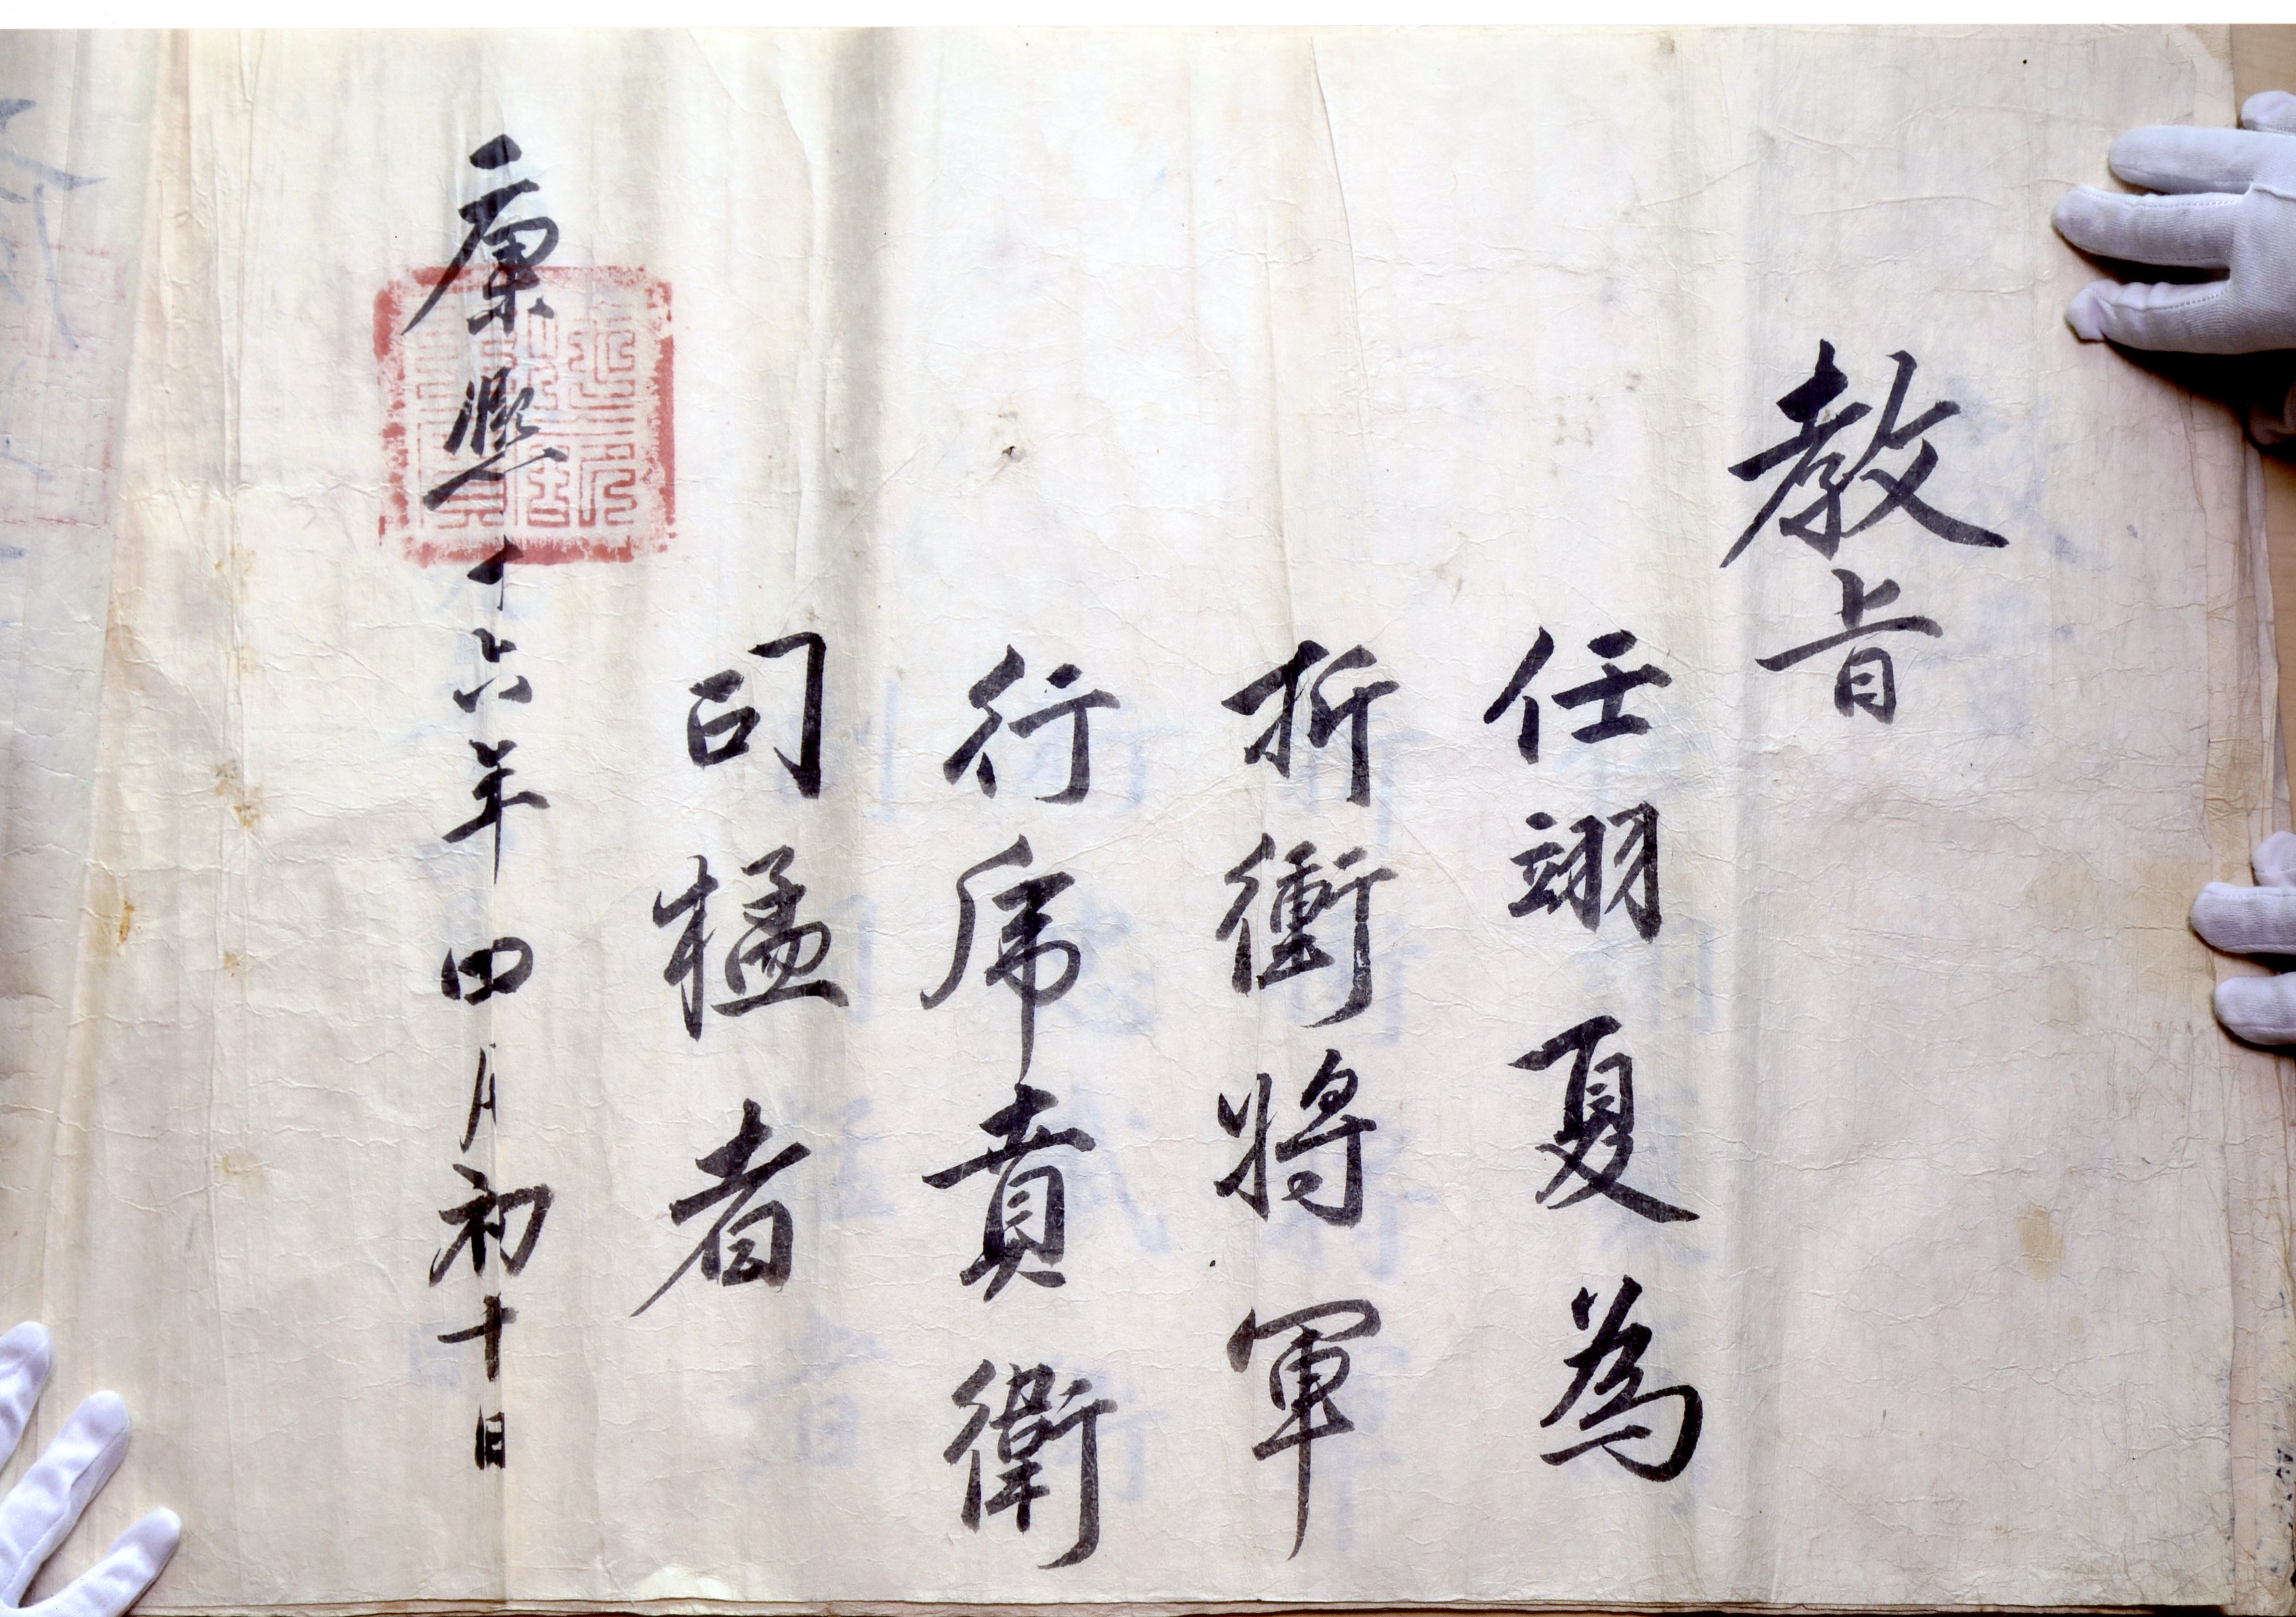 教旨
任翊夏為
折衝將軍
行虎賁衛
司猛者
康熙十六年四月初十日